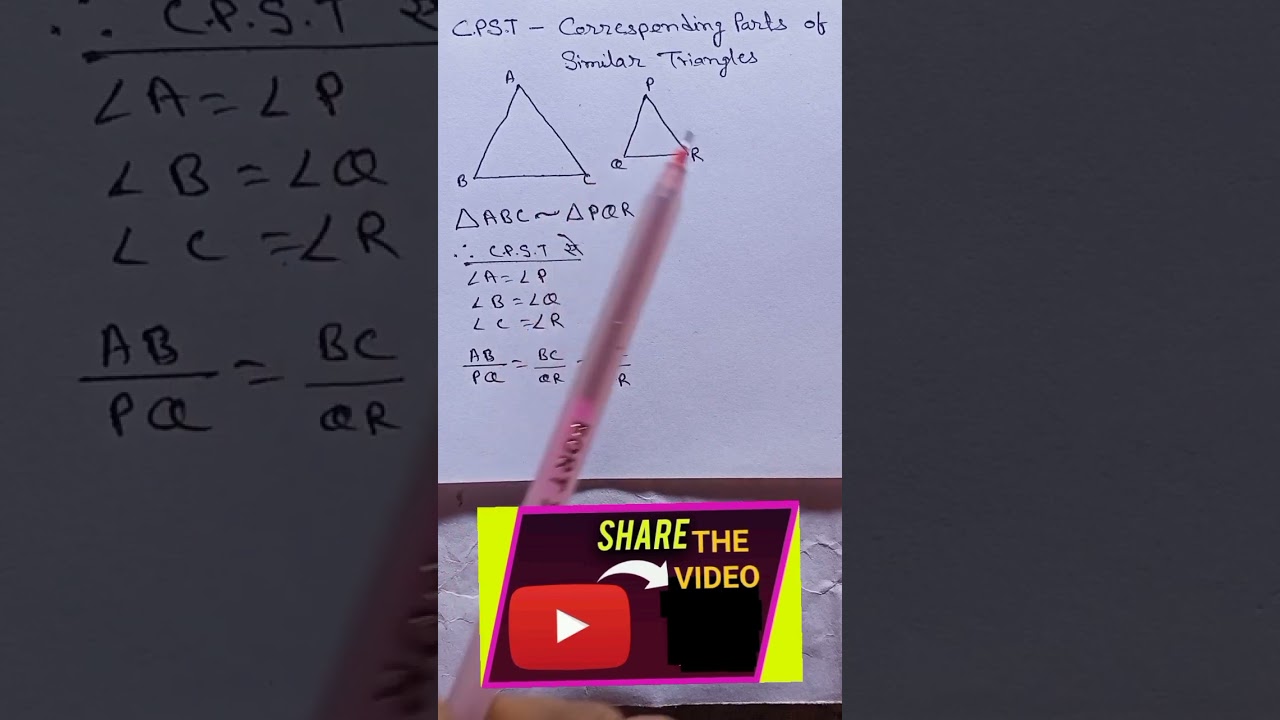 C.P.S.T - Corresponding Parts of
Similar Triangles
A
B
C
P
Q
R
△ABC ~ △PQR
∴ C.P.S.T से
∠A = ∠P
∠B = ∠Q
∠C = ∠R
AB/PQ = BC/QR =
SHARE THE
VIDEO
∴ C.P.S.T
∠A = ∠P
∠B = ∠Q
∠C = ∠R
AB/PQ = BC/QR